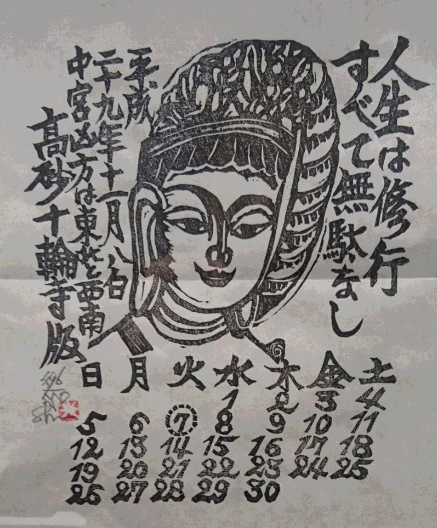 人生は修行
すべて無駄なし
平成
二十九年十一月八白
中宮凶方は東北と西南
高砂十輪寺版
日 月 火 水 木 金 土
1 2 3 4
5 6 7 8 9 10 11
12 13 14 15 16 17 18
19 20 21 22 23 24 25
26 27 28 29 30